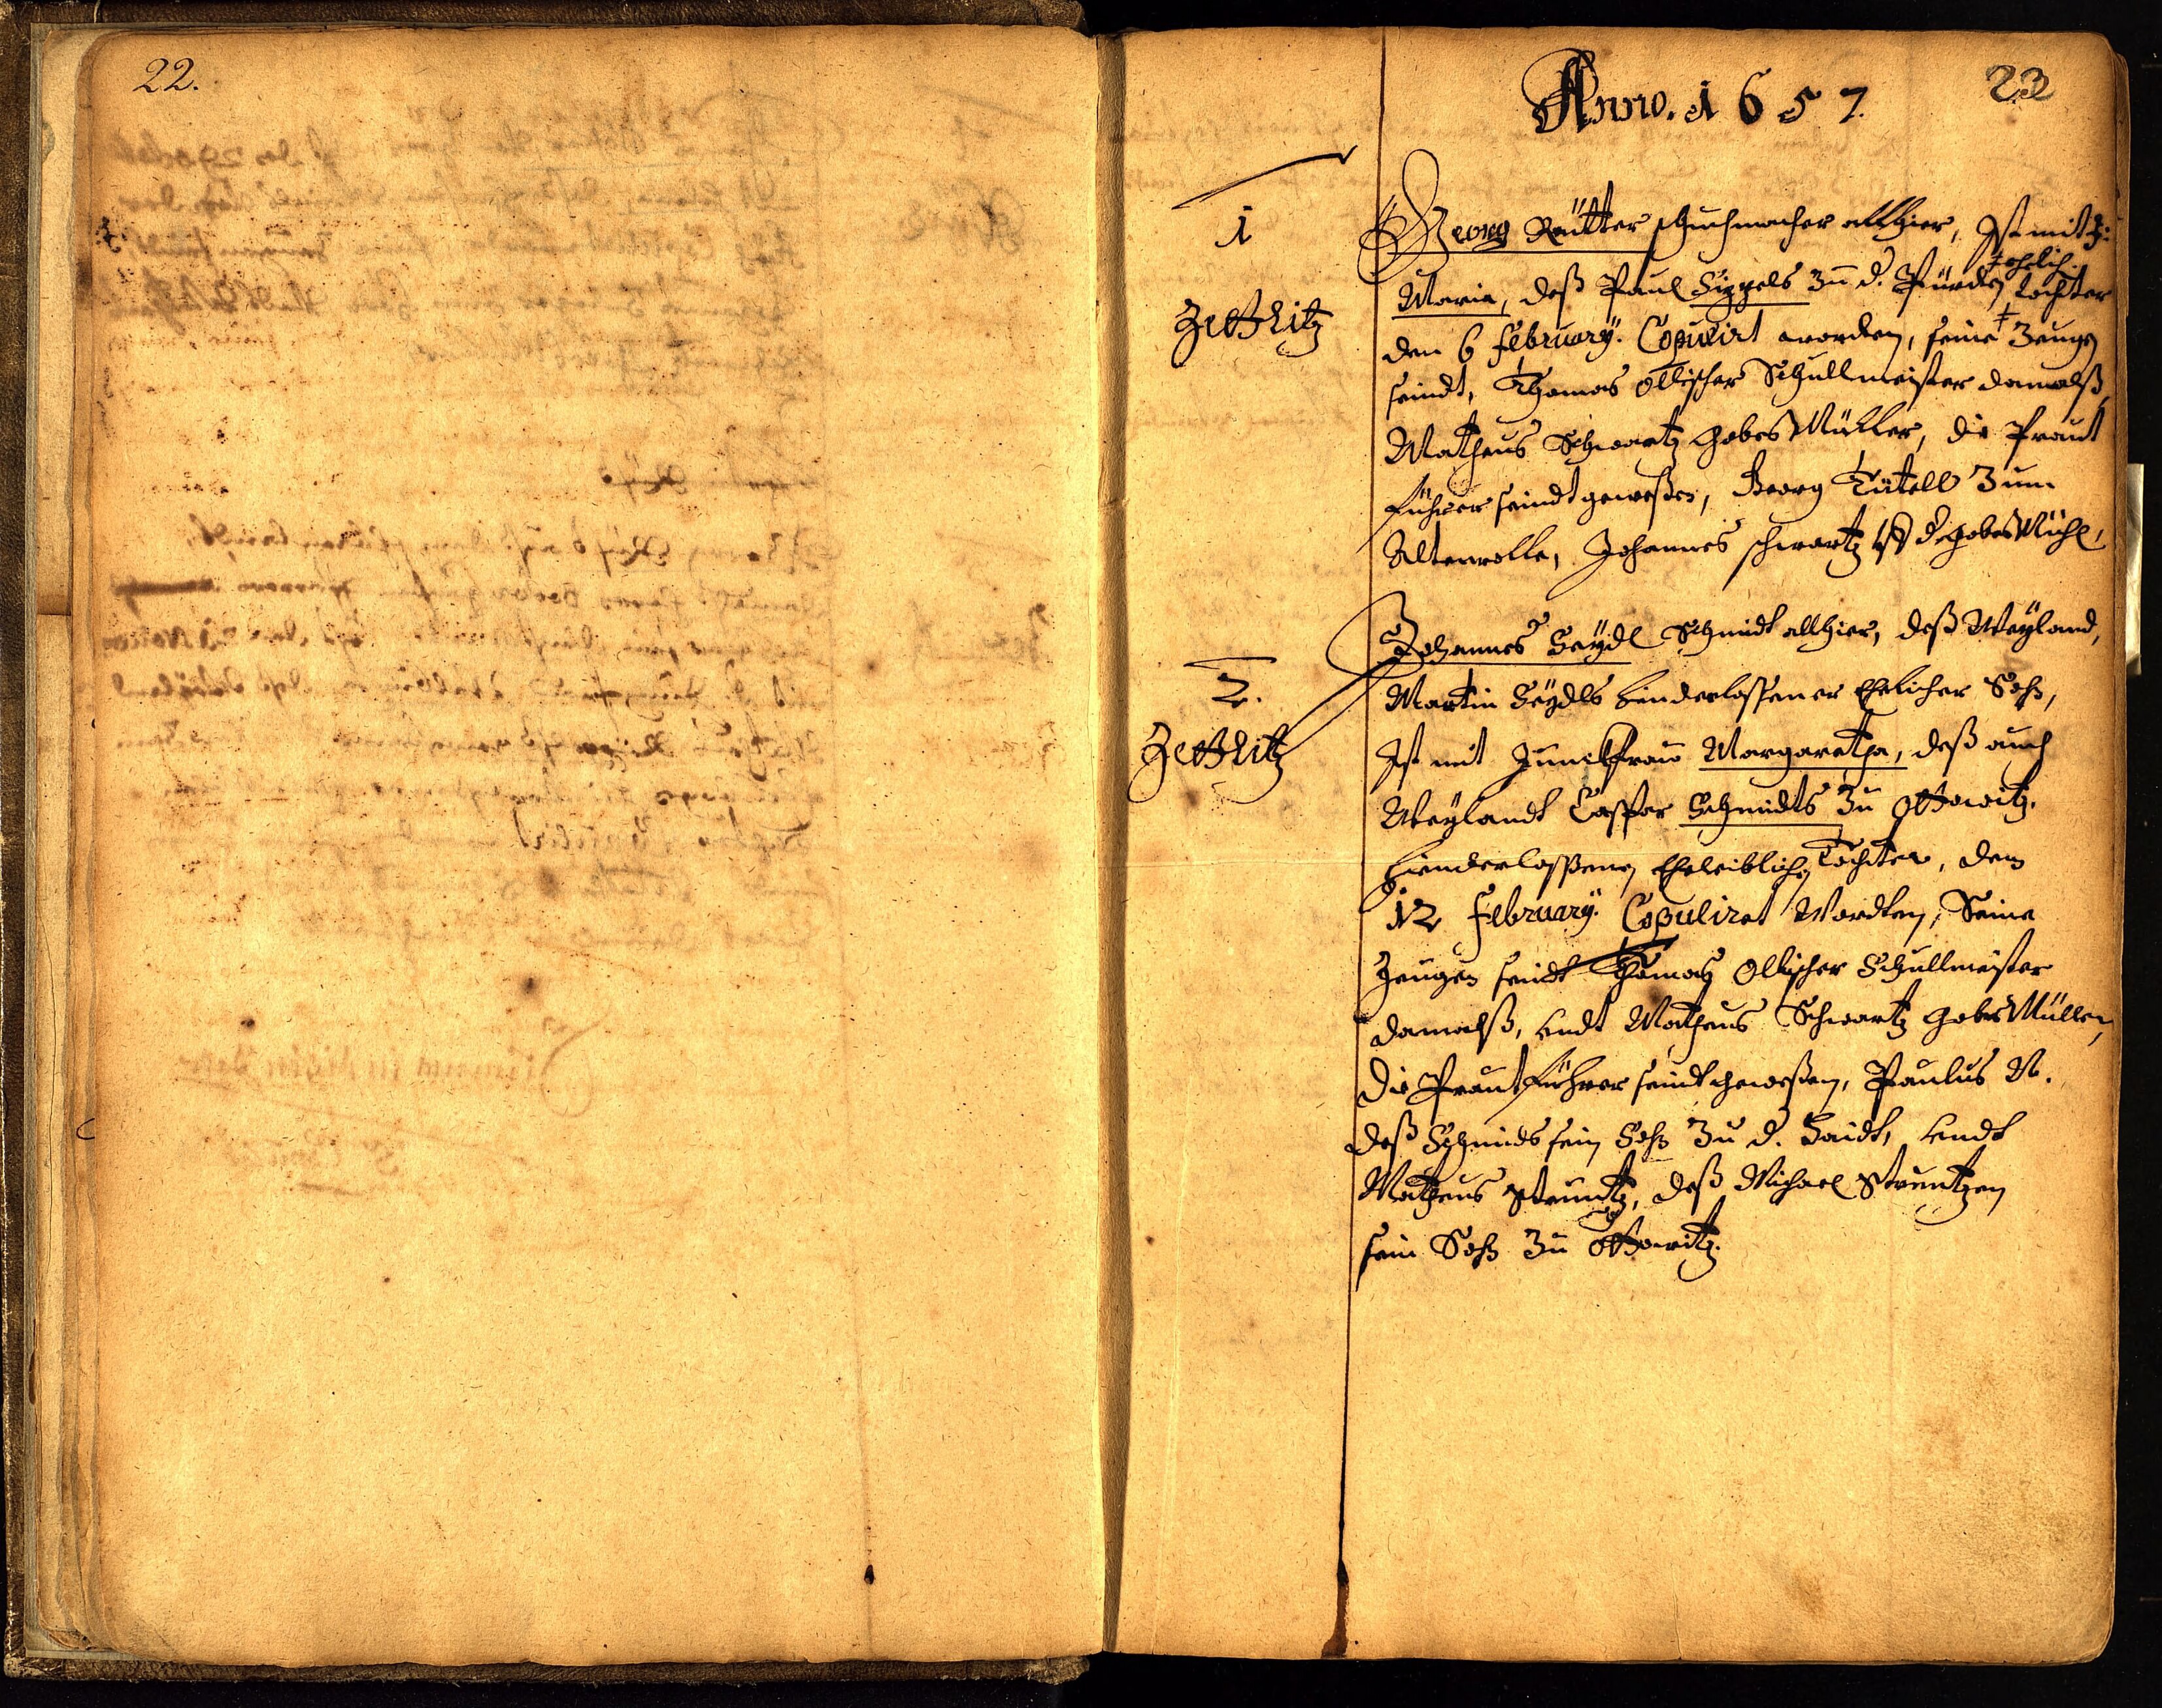 22.
23
Anno. 1657.
1
Zettlitz
Georg Reütter schuchmacher allhier, Ist mit J:
Maria, deß Paul Sigels zu d. ehelich
Tochter
den 6 february. Copulirt worden, seine Zeugen
seindt, Thomas Ollischer Schullmeister damalß,
Matheus Schwartz gobes Müller, die Praut
führer seindt geweßen, Georg Tütell Zum
Altenrolla, Johannes schwartz uf d. gobes Mühl,
2.
Zettlitz
Johannes Seydl Schmidt allhier, deß Weyland,
Martin Seydls hinderlaßener Ehelicher Sohn,
Ist mit Junckfrau Margaretha, deß auch
Weylandt Casper Schmidts zu Ottowitz.
hinderlaßenen Eheleibliche Tochter, den
12 february. Copuliret Wordten, Seine
Zeugen seindt Thomas Ollischer Schullmeister
damalß, undt Matheus Schwartz gobes Müller,
Die Prautführer seindt geweßen, Paulus N.
deß Schmids sein Sohn Zu d. Haidt, undt
Matheus Struntz, deß Michael Struntzen
sein Sohn Zu Ottowitz.